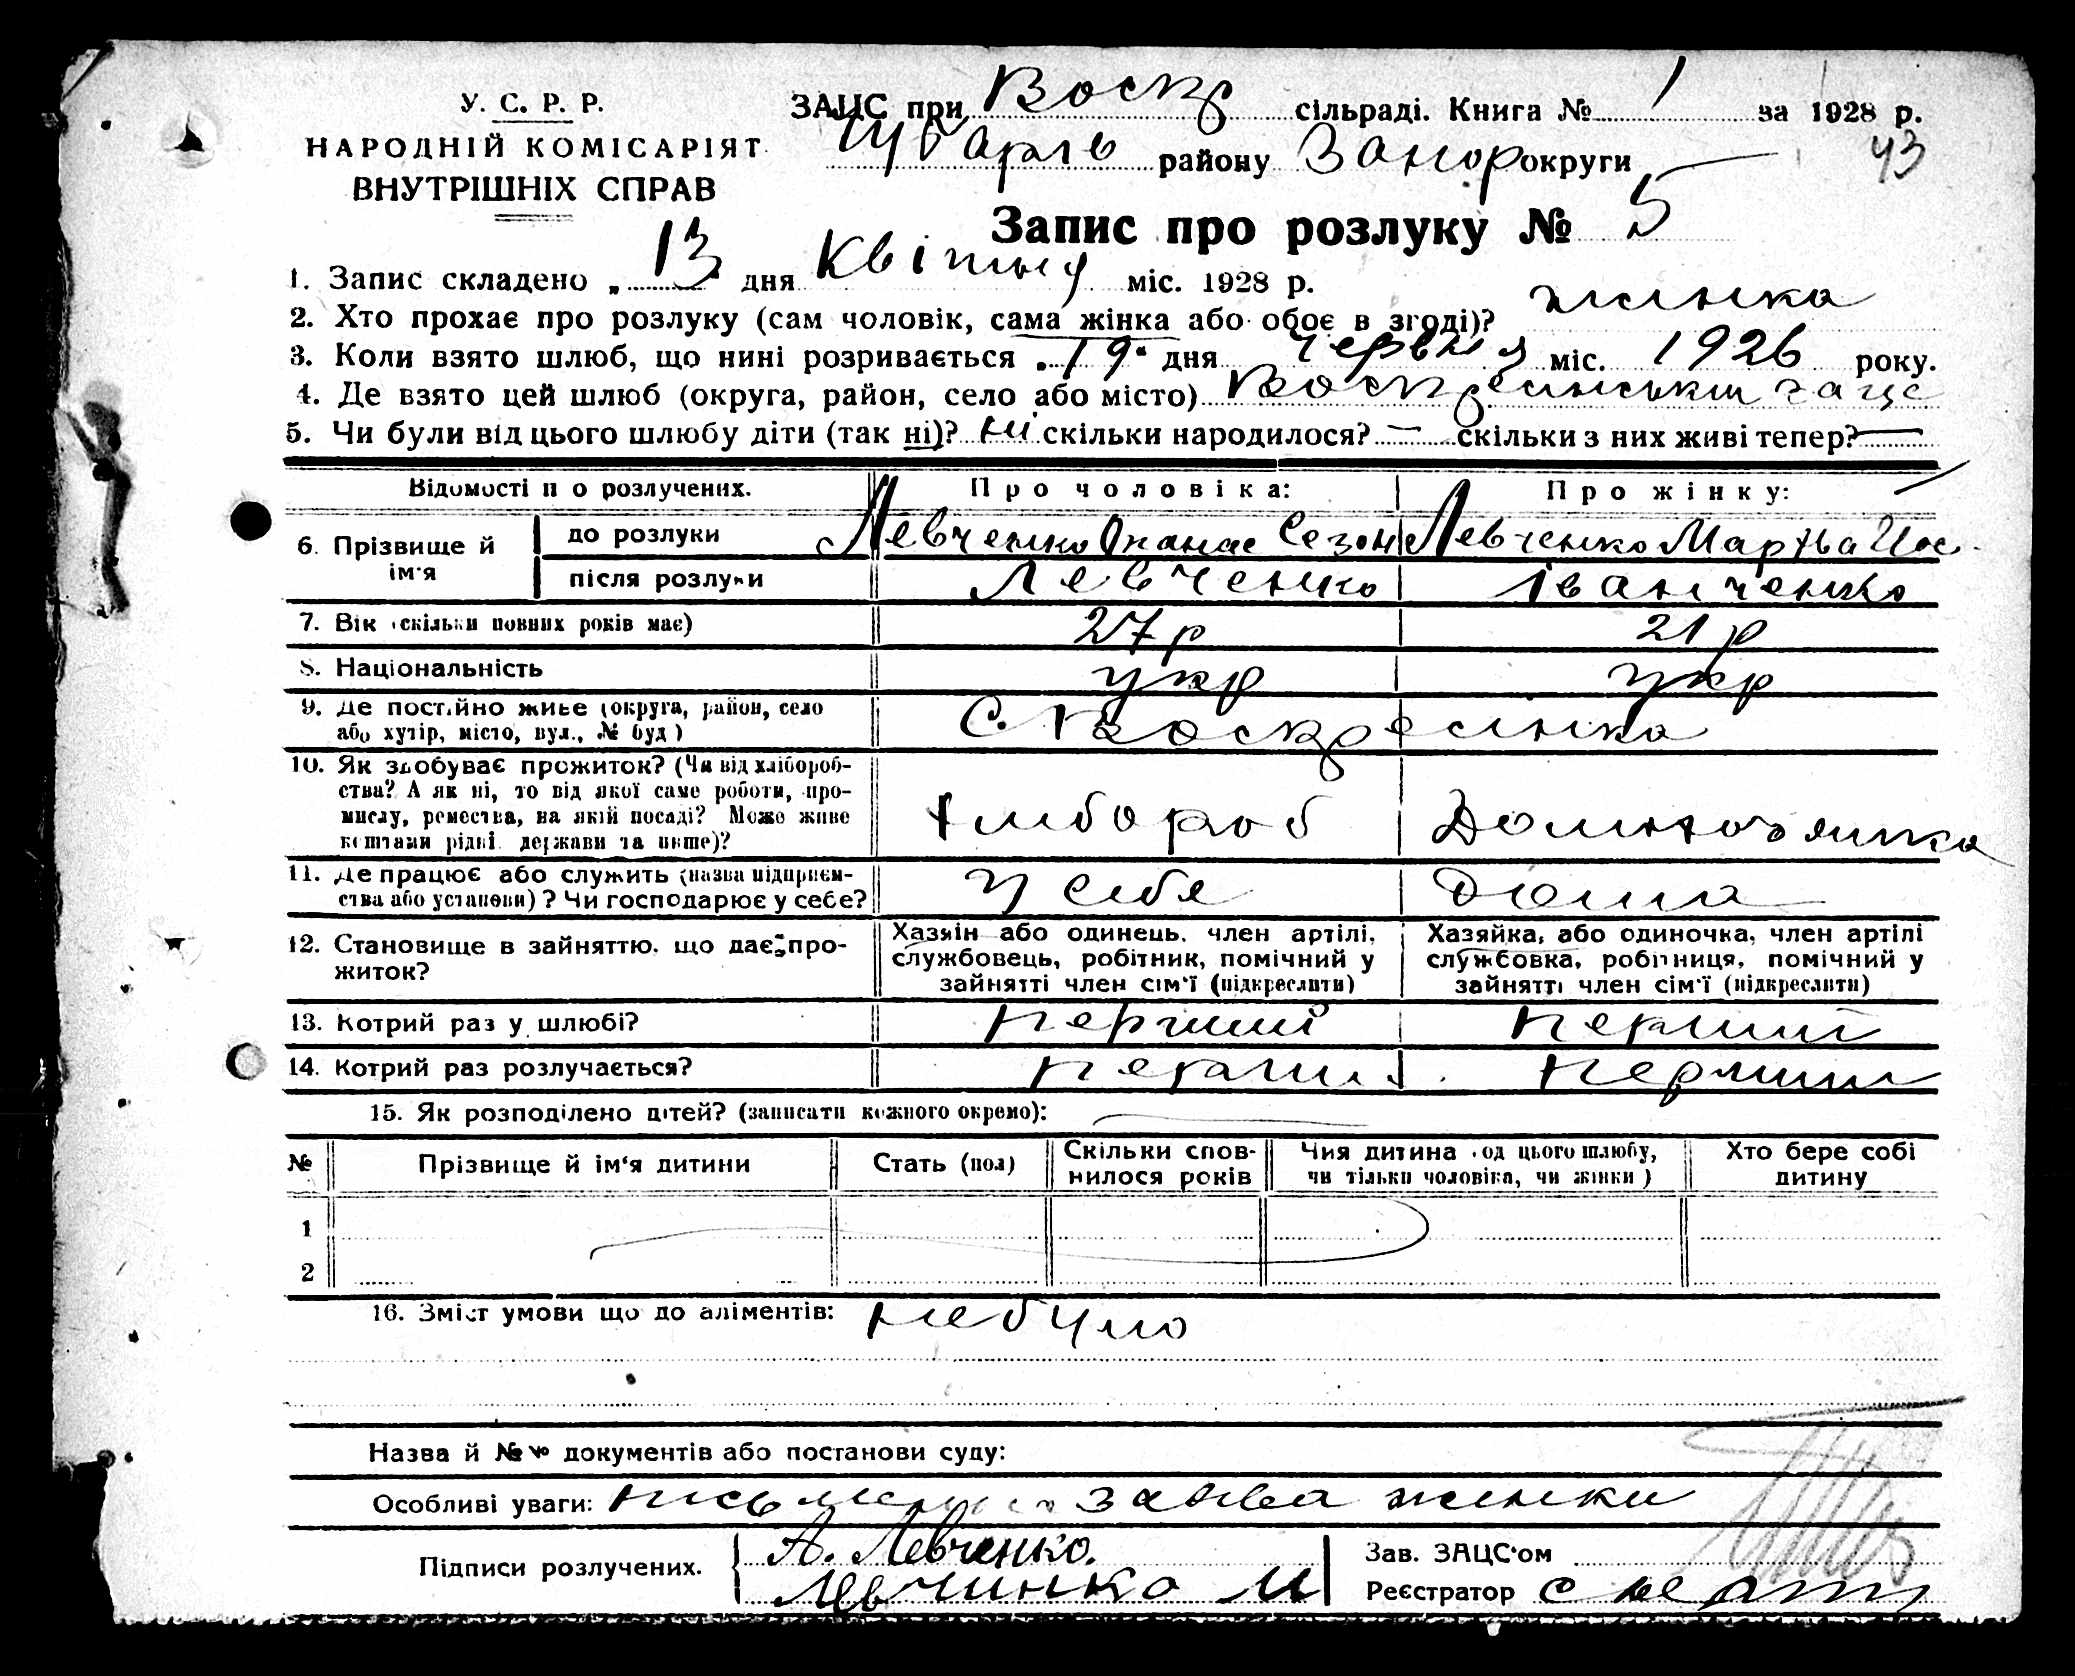 У. С. Р. Р.
НАРОДНІЙ КОМІСАРІЯТ
ВНУТРІШНІХ СПРАВ
ЗАЦС при Воскр сільраді. Книга № 1 за 1928 р.
Чубарів району Запор округи
43
Запис про розлуку № 5
1. Запис складено „ 13 " дня Квітня міс. 1928 р.
2. Хто прохає про розлуку (сам чоловік, сама жінка або обоє в згоді)? жинка
3. Коли взято шлюб, що нині розривається „ 19 " дня червня міс. 1926 року.
4. Де взято цей шлюб (округа, район, село або місто) Воскресинський зацс
5. Чи були від цього шлюбу діти (так ні)? ні скільки народилося? — скільки з них живі тепер? —
Відомости п о розлучених. Про чоловіка: Про жінку:
6. Прізвище й ім'я до розлуки Левченко Опанас Левченко Марфа
після розлуки Левченко Іванченко
7. Вік (скільки повних років має) 27 р 21 р
8. Національність укр укр
9. Де постійно живе (округа, район, село
або хутір, місто, вул., № буд) С. Воскресінка
10. Як здобуває прожиток? (Чи від хлібороб-
ства? А як ні, то від якої саме роботи, про-
мислу, ремества, на якій посаді? Може живе
коштами рідні держави та инше)? Хлибороб Домохозяйка
11. Де працює або служить (назва підприєм-
ства або установи)? Чи господарює у себе? У себя Дома
12. Становище в зайняттю, що дає про-
житок?
Хазяїн або одинець, член артілі,
службовець, робітник, помічний у
зайнятті член сім'ї (підкреслити)
Хазяйка, або одиночка, член артілі
службовка, робітниця, помічний у
зайнятті член сім'ї (підкреслити)
13. Котрий раз у шлюбі? перший перший
14. Котрий раз розлучається? перший перший
15. Як розподілено дітей? (записати кожного окремо): —
№ Прізвище й ім'я дитини Стать (пол) Скільки спов-нилося років Чия дитина (од цього шлюбу, чи тільки чоловіка, чи жінки) Хто бере собі дитину
1
2
16. Зміст умови що до аліментів: небуло
Назва й №№ документів або постанови суду:
Особливі уваги: заява жинки
Підписи розлучених. А. Левченко.
Левчинко М
Зав. ЗАЦС'ом
Реєстратор